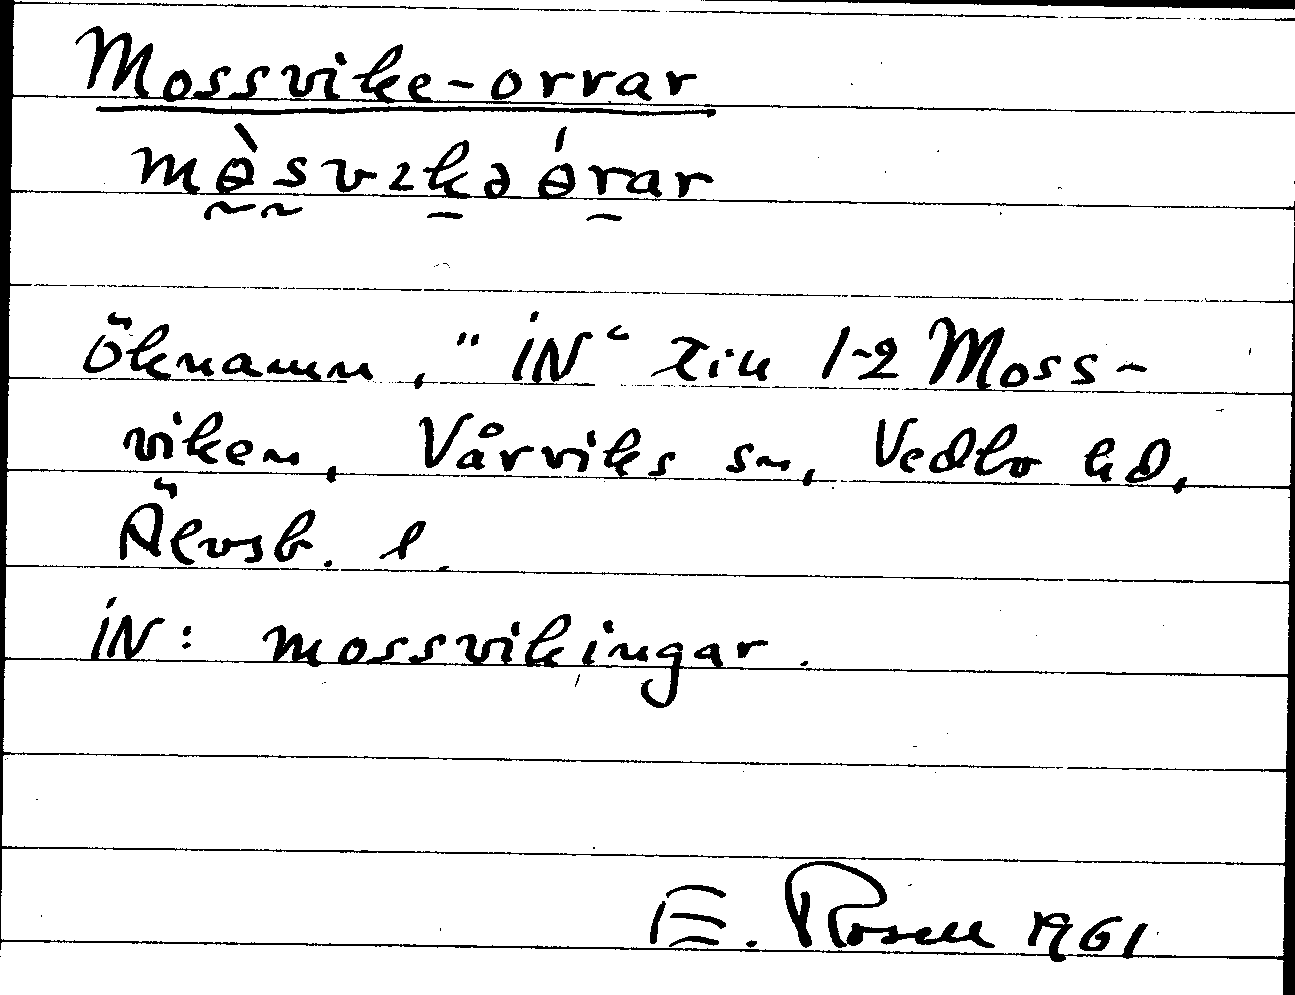 Mossvike-orrar
mɵ̀svɪkə ɵ́rar
Öknamn, "iN" till 1-2 Moss-
viken, Vårviks sn, Vedbo hd,
Älvsb. l.
iN: mossvikingar.
E. Rosell 1961